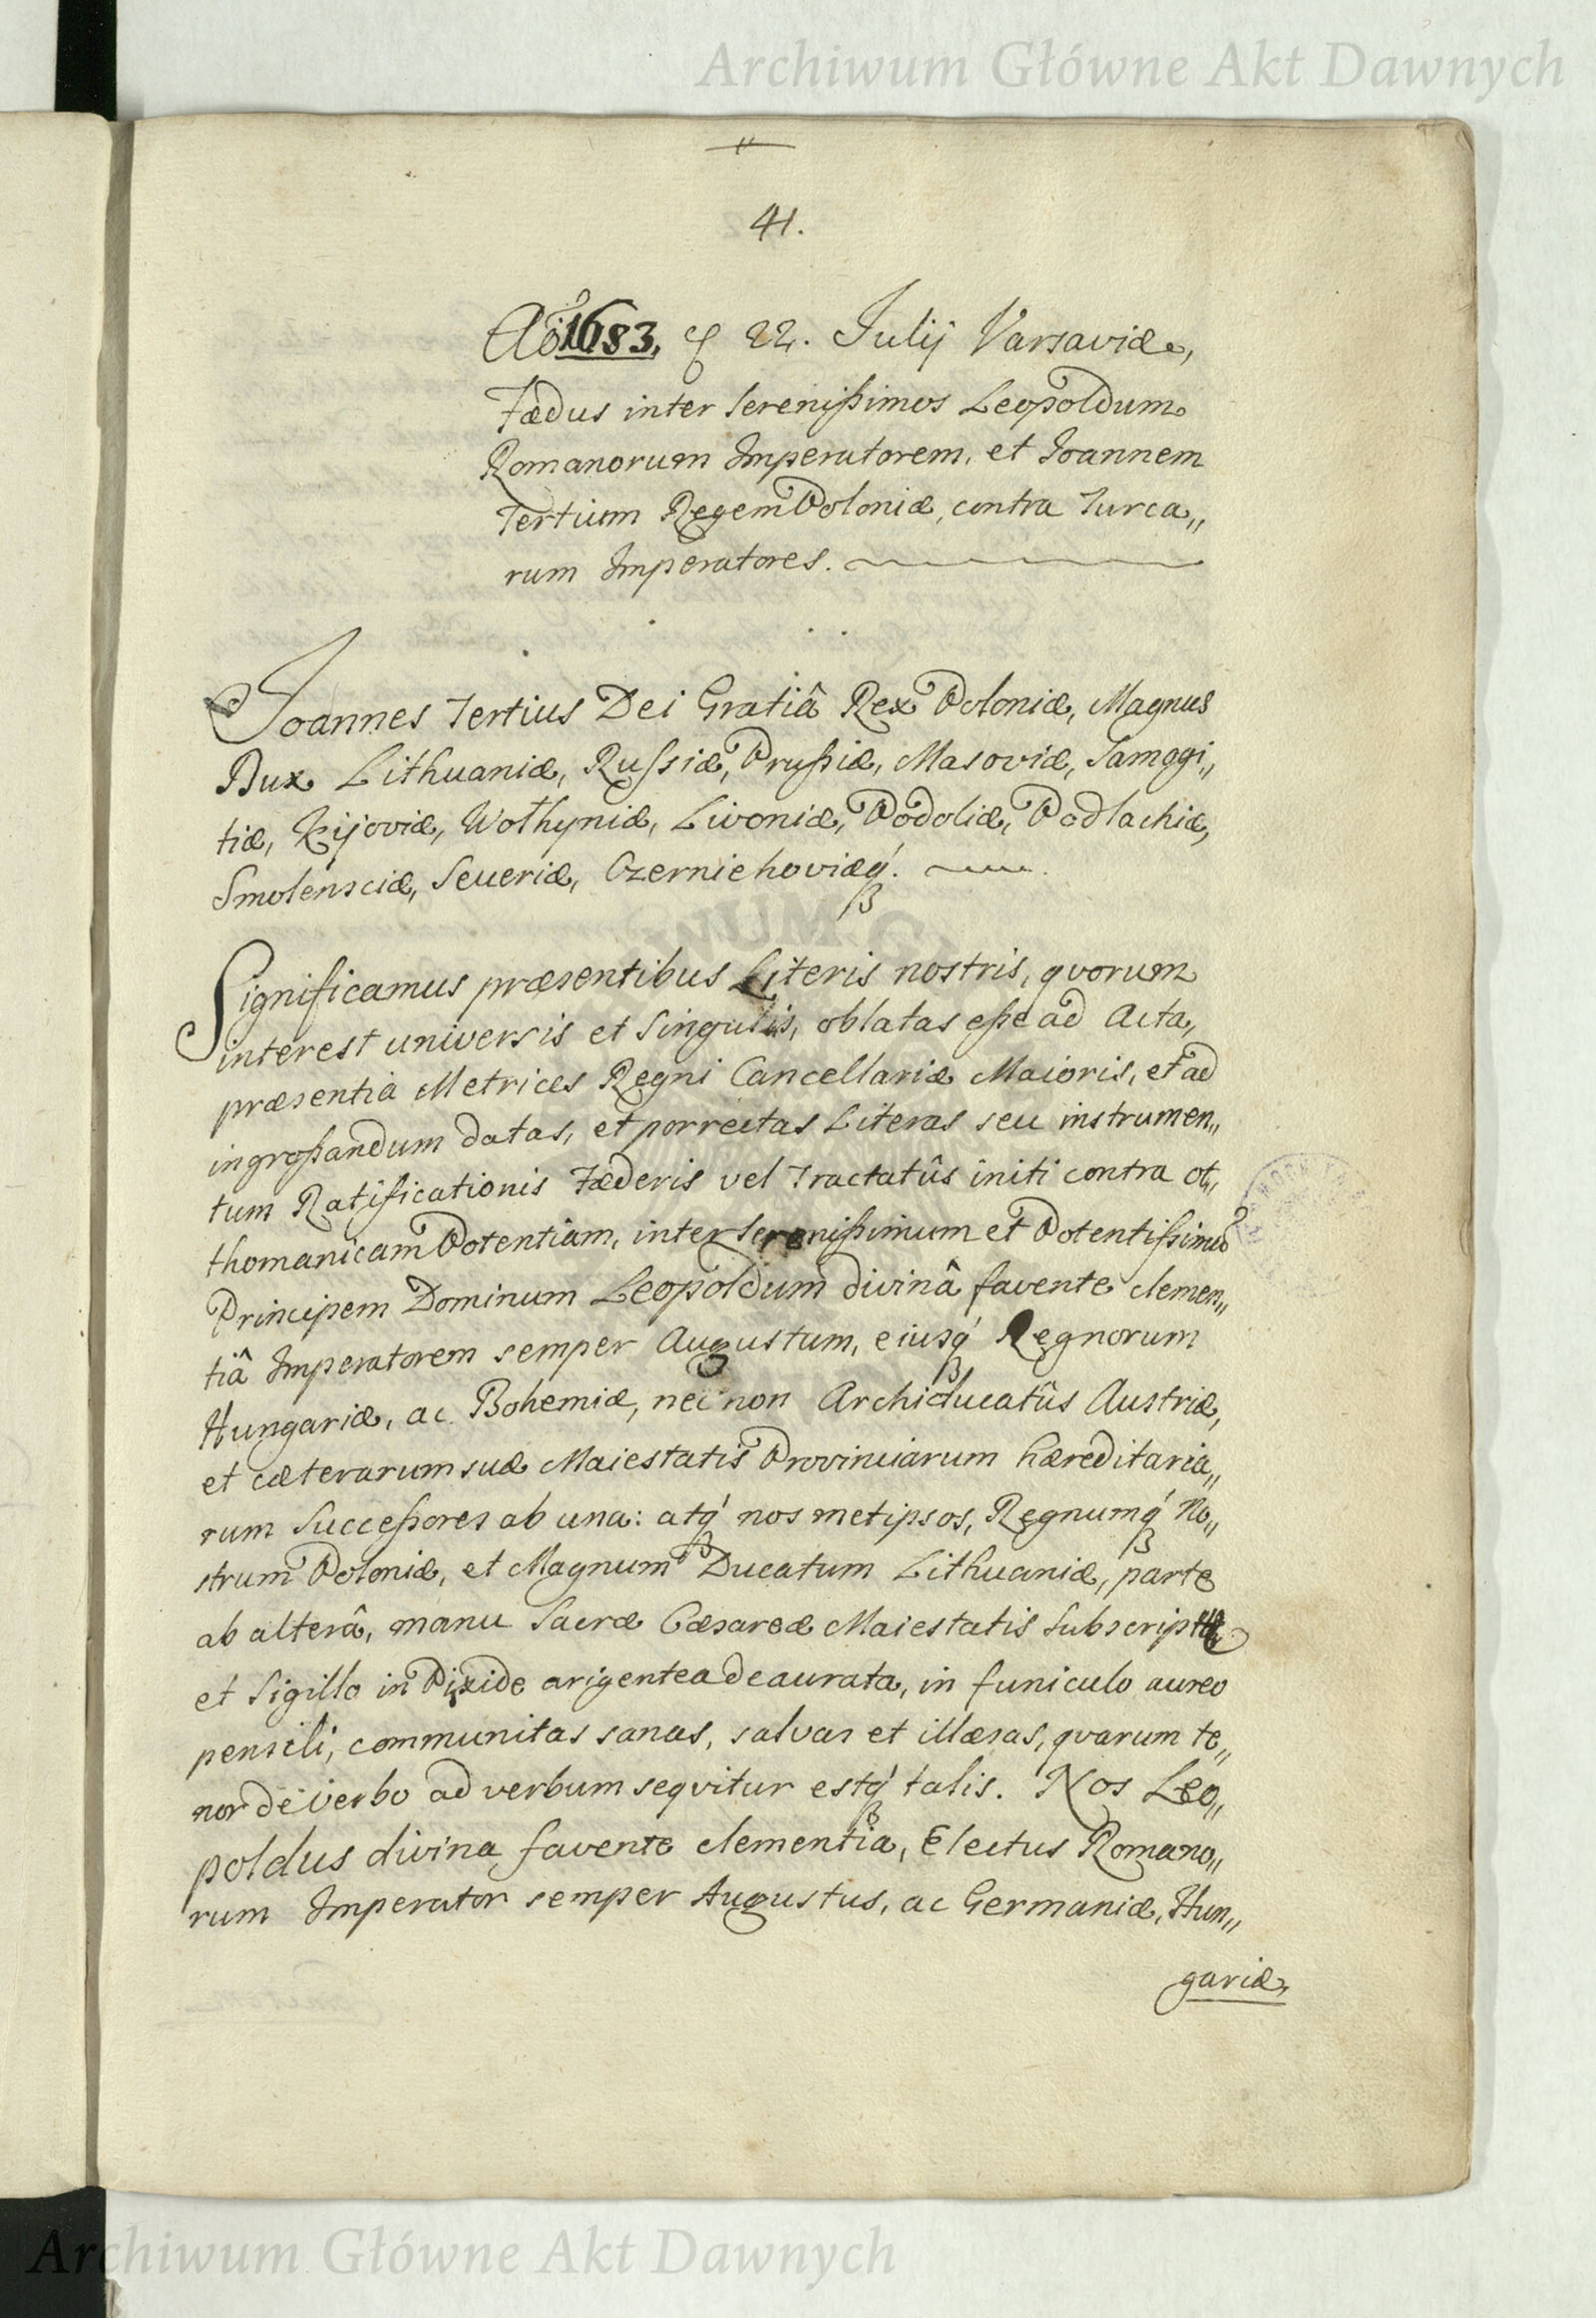 Archiwum Główne Akt Dawnych
41.
Ao 1683, 22. Julij Varsaviæ,
Fædus inter Serenißimos Leopoldum
Romanorum Imperatorem, et Joannem
Tertium Regem Poloniæ, contra Turca„
rum Imperatores.
Joannes Tertius Dei Gratiâ Rex Poloniæ, Magnus
Dux Lithuaniæ, Rußiæ, Prußiæ, Masoviæ, Samogi„
tiæ, Kijoviæ, Wołhyniæ, Livoniæ, Podoliæ, Podlachiæ,
Smolensciæ, Severiæ, Czerniehoviæq́.
Significamus præsentibus Literis nostris, qvorum
interest universis et Singulis, oblatas eße ad Acta,
præsentia Metrices Regni Cancellariæ Maioris, et ad
ingroßandum datas, et porrectas Literas seu instrumen„
tum Ratificationis Fæderis vel Tractatûs initi contra ot„
thomanicam Potentiam, inter Serenißimum et Potentißimũ
Principem Dominum Leopoldum divinâ favente clemen„
tiâ Imperatorem semper Augustum, eiusq́ Regnorum
Hungariæ, ac Bohemiæ, nec non Archiducatûs Austriæ,
et cæterarum suæ Maiestatis Provinciarum hæreditaria„
rum Succeßores ab una: atq́ nos metipsos, Regnumq́ No„
strum Poloniæ, et Magnum Ducatum Lithuaniæ, parte
ab alterâ, manu Sacræ Cæsareæ Maiestatis
et Sigillo in Pixide arigentea deaurata, in funiculo aureo
pensili, communitas sanas, salvas et illæsas, qvarum te„
nor de verbo ad verbum seqvitur estq́ talis. Nos Leo„
poldus divina favente clementia, Electus Romano„
rum Imperator semper Augustus, ac Germaniæ, Hun„
gariæ,
Archiwum Główne Akt Dawnych